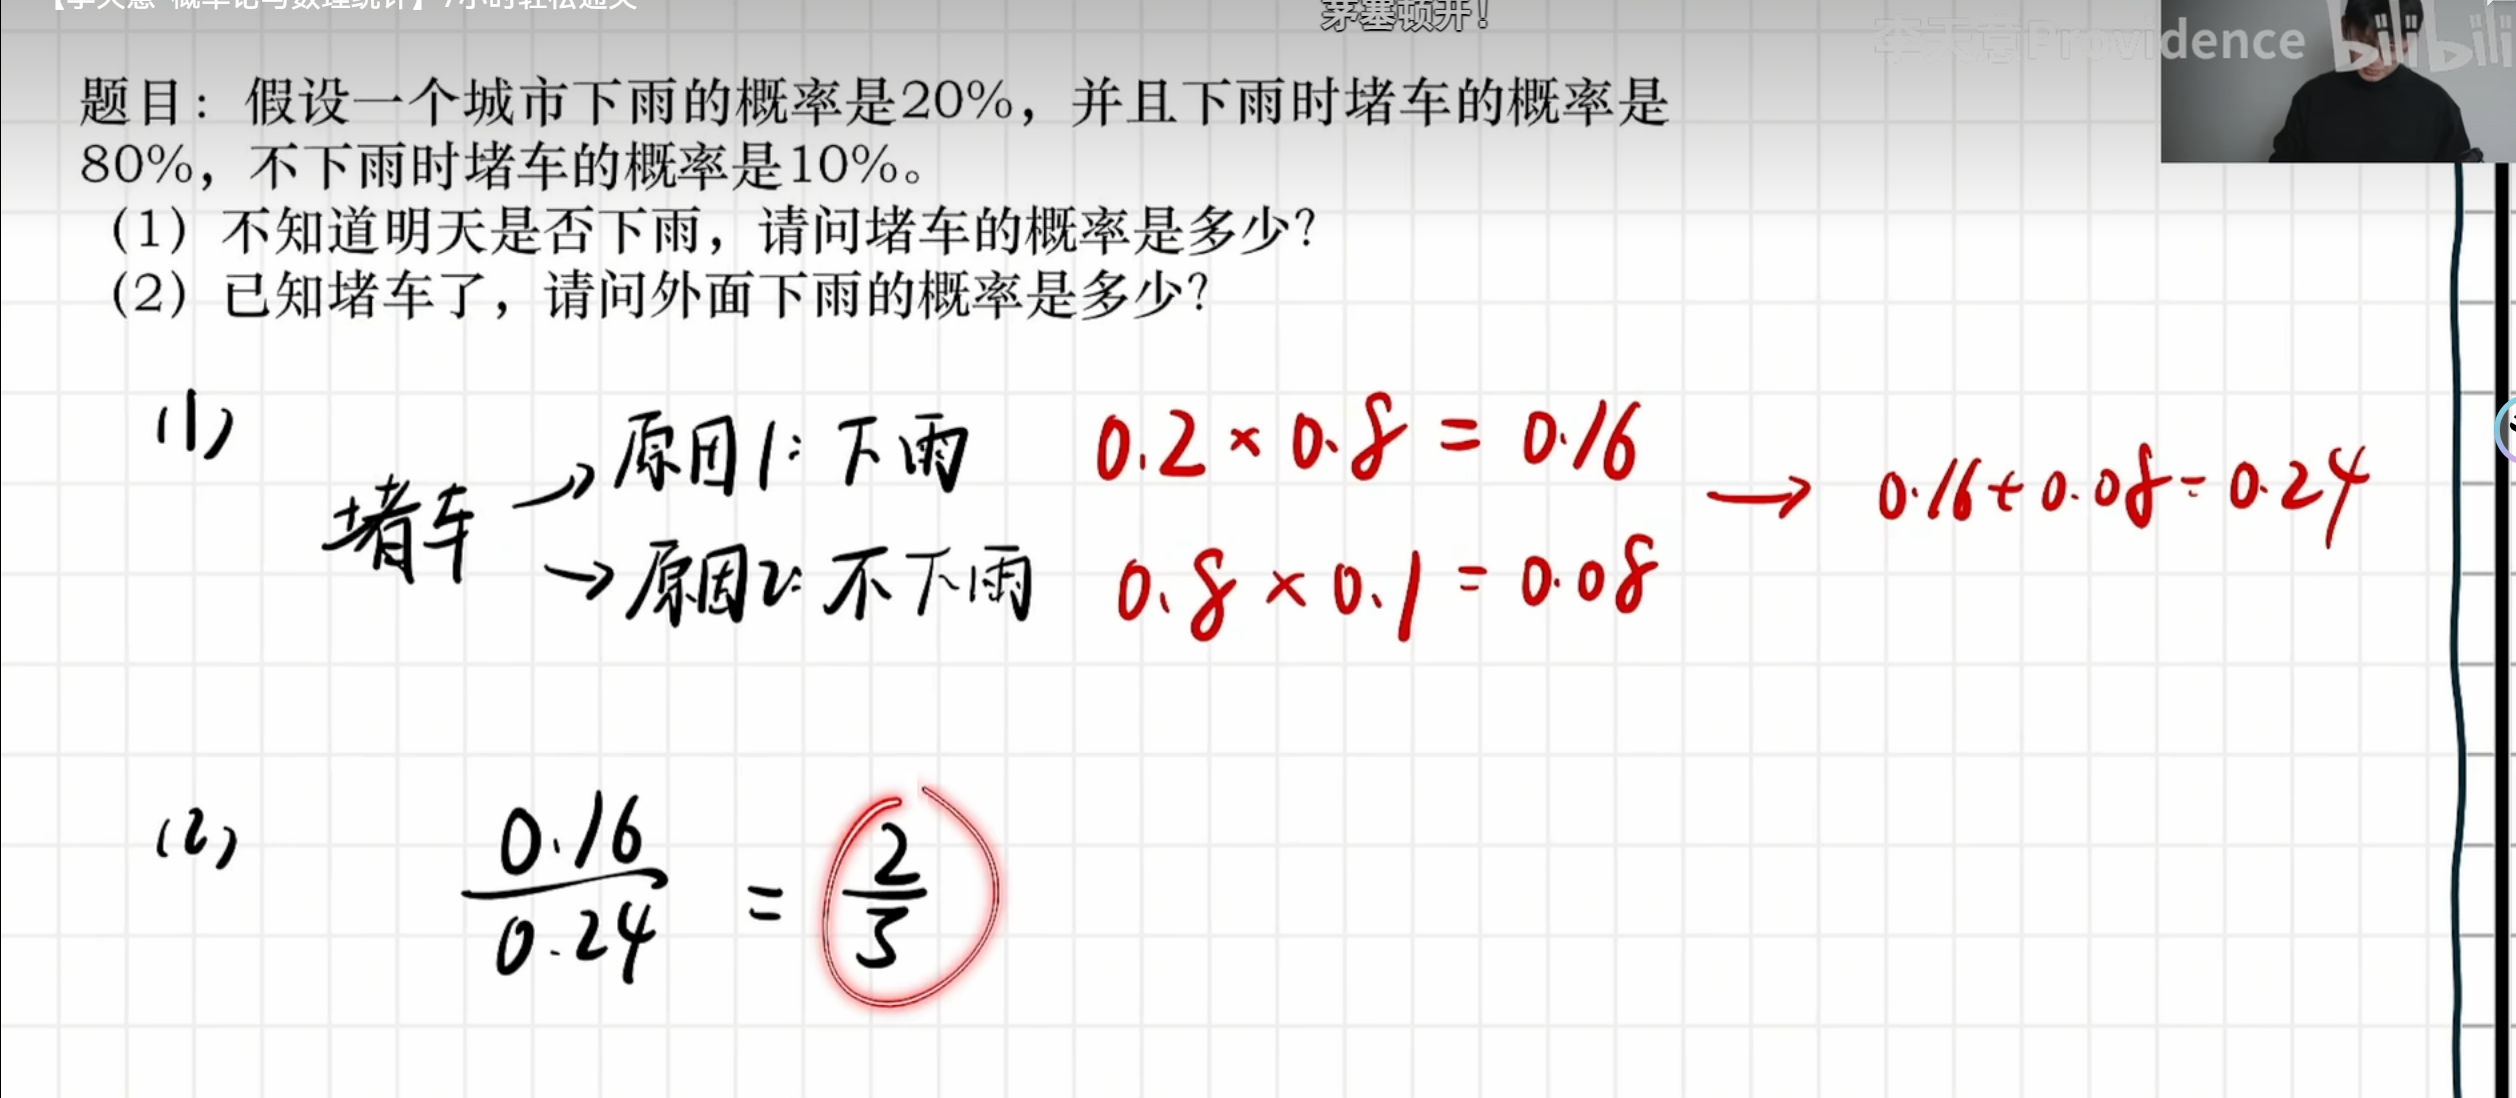 【李天意 概率论与数理统计】7小时轻松通关
茅塞顿开！
李天意Providence
bilibili
题目：假设一个城市下雨的概率是20%，并且下雨时堵车的概率是
80%，不下雨时堵车的概率是10%。
（1）不知道明天是否下雨，请问堵车的概率是多少？
（2）已知堵车了，请问外面下雨的概率是多少？
(1)
堵车
→ 原因1: 下雨 0.2 × 0.8 = 0.16
→ 0.16+0.08=0.24
→ 原因2: 不下雨 0.8 × 0.1 = 0.08
(2)
0.16
0.24
=
2
3